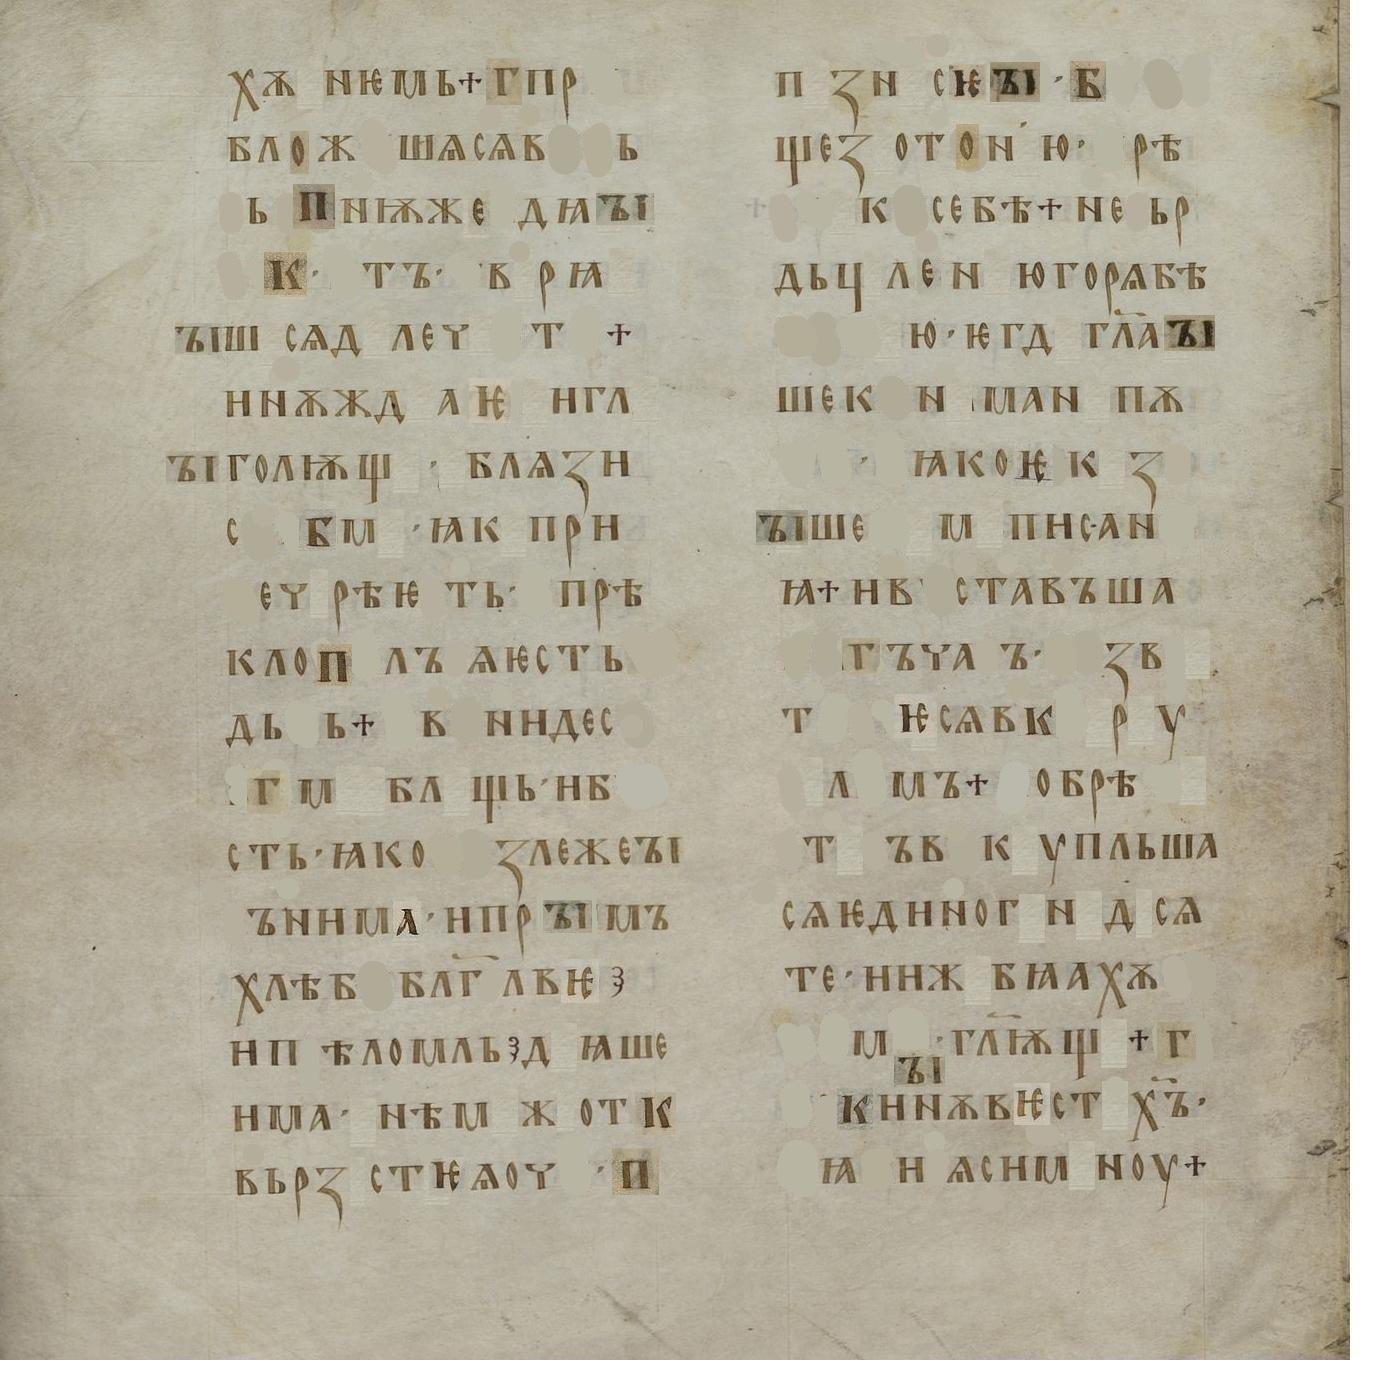 хѫ нѥмь+гпр
блож шѧсѧв ь
ь пниѭже дꙗꙑ
к· тъ· в рꙗ
ꙑш сѧд леү т +
ннѫжд аѥ нгл
ꙑголѭщ · блѧзн
с бм ·ꙗк прн
еү рѣѥ ть· прѣ
клоп лъ ѧѥсть
дь ь+ в ниндес
гм бл щь·нб
сть·ꙗко злежеꙑ
ъннма·нпрꙑ мъ
хлѣб блг҃ лвѥ ꙁ
нп ѣломльꙁд ꙗше
нма· нѣм ж отк
вьрз стѥѧоү ·п
п зн сѥꙑ·б
щез отон ю· рѣ
к себѣ+не ьр
дьц лен югорѧбѣ
ю·ѥгд гл҃аꙑ
шек н ман пѫ
· ꙗкоѥк з
ꙑше м писан
ꙗ+нв ставъша
гъүа ъ· зв
т ѥсѧвк р у
л мъ+ обрѣ
т ъв к упльша
сѧѥдиног н д сѧ
те·ннж бꙗахѫ
м ·гл҃ѭщ +г
ꙑ
кннѫвѥст хъ҃·
ꙗ н ѧсим ноу+